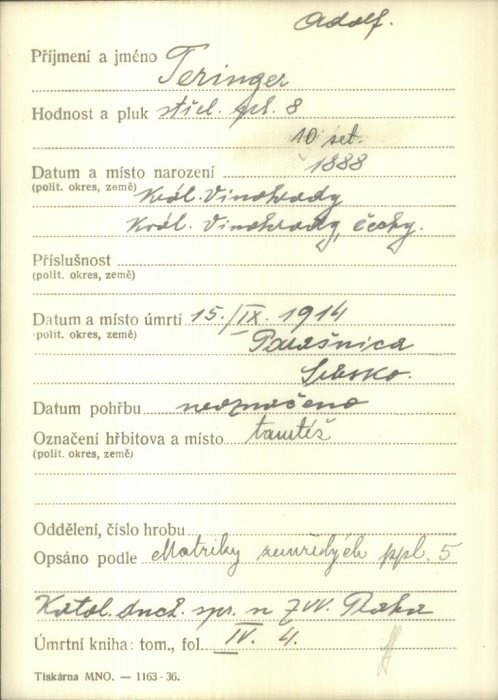 Adolf.
Příjmení a jméno Teringer
Hodnost a pluk střel. pl. 8
10 set.
Datum a místo narození 1888
(polit. okres, země) Král. Vinohrady
Král. Vinohrady, Čechy.
Příslušnost
(polit. okres, země)
Datum a místo úmrtí 15./IX. 1914
(polit. okres, země) Parašnica
Srbsko.
Datum pohřbu neoznačeno
Označení hřbitova a místo tamtéž
(polit. okres, země)
Oddělení, číslo hrobu
Opsáno podle Matriky zemřelých ppl. 5
Katol. duch. spr. n ZVV. Praha
Úmrtní kniha: tom., fol. IV. 4.
Tiskárna MNO. — 1163-36.